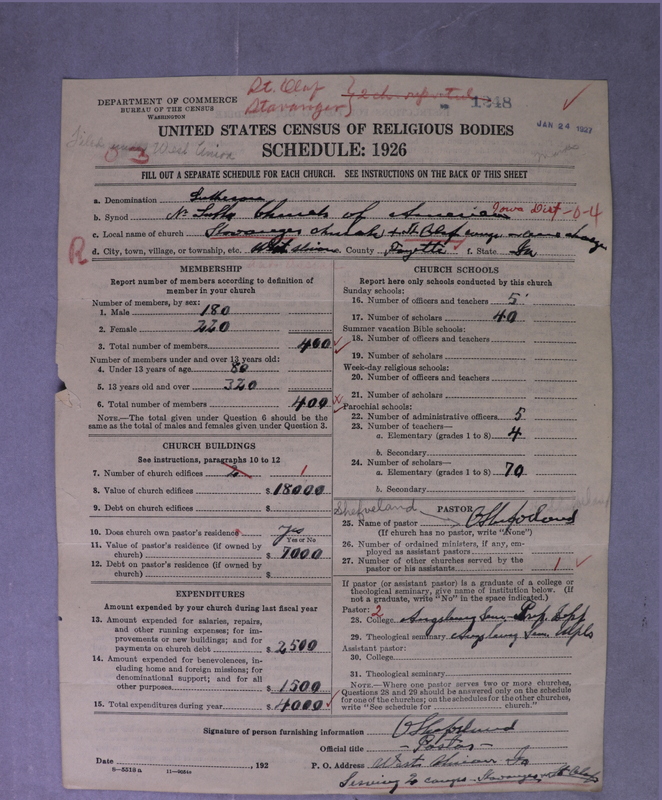 St. Olaf } 2 ch. reported
Stavanger }
1248
DEPARTMENT OF COMMERCE
BUREAU OF THE CENSUS
WASHINGTON
JAN 24 1927
UNITED STATES CENSUS OF RELIGIOUS BODIES
Filed under West Union
0 3
SCHEDULE: 1926
FILL OUT A SEPARATE SCHEDULE FOR EACH CHURCH. SEE INSTRUCTIONS ON THE BACK OF THIS SHEET
a. Denomination Lutheran
b. Synod Nr Luth Church of American Iowa Dist -0-4
c. Local name of church Stavanger church & St Olaf congr
R
d. City, town, village, or township, etc. West Union e. County Fayette f. State Ia
MEMBERSHIP
Report number of members according to definition of
member in your church
Number of members, by sex:
1. Male 180
2. Female 220
3. Total number of members 400
Number of members under and over 13 years old:
4. Under 13 years of age 80
5. 13 years old and over 320
6. Total number of members 400
NOTE.—The total given under Question 6 should be the
same as the total of males and females given under Question 3.
CHURCH BUILDINGS
See instructions, paragraphs 10 to 12
7. Number of church edifices 2 1
8. Value of church edifices $ 18000
9. Debt on church edifices $
10. Does church own pastor's residence yes
Yes or No
11. Value of pastor's residence (if owned by
church) $ 7000
12. Debt on pastor's residence (if owned by
church) $
EXPENDITURES
Amount expended by your church during last fiscal year
13. Amount expended for salaries, repairs,
and other running expenses; for im-
provements or new buildings; and for
payments on church debt $ 2500
14. Amount expended for benevolences, in-
cluding home and foreign missions; for
denominational support; and for all
other purposes $ 1500
15. Total expenditures during year $ 4000
CHURCH SCHOOLS
Report here only schools conducted by this church
Sunday schools:
16. Number of officers and teachers 5
17. Number of scholars 40
Summer vacation Bible schools:
18. Number of officers and teachers
19. Number of scholars
Week-day religious schools:
20. Number of officers and teachers
21. Number of scholars
Parochial schools:
22. Number of administrative officers 5
23. Number of teachers—
a. Elementary (grades 1 to 8) 4
b. Secondary
24. Number of scholars—
a. Elementary (grades 1 to 8) 70
b. Secondary
Shefveland
PASTOR
25. Name of pastor O Shefveland
(If church has no pastor, write "None")
26. Number of ordained ministers, if any, em-
ployed as assistant pastors
27. Number of other churches served by the
pastor or his assistants 1
If pastor (or assistant pastor) is a graduate of a college or
theological seminary, give name of institution below. (If
not a graduate, write "No" in the space indicated.)
Pastor: 2
28. College Augsburg Sem
29. Theological seminary Augsburg Sem Mpls
Assistant pastor:
30. College
31. Theological seminary
NOTE.—Where one pastor serves two or more churches,
Questions 28 and 29 should be answered only on the schedule
for one of the churches; on the schedules for the other churches,
write "See schedule for church."
Signature of person furnishing information O Shefveland
Official title - Pastor -
Date , 192 P. O. Address West Union Ia
8—5518 a
Serving 2 congr Stavanger & St Olaf